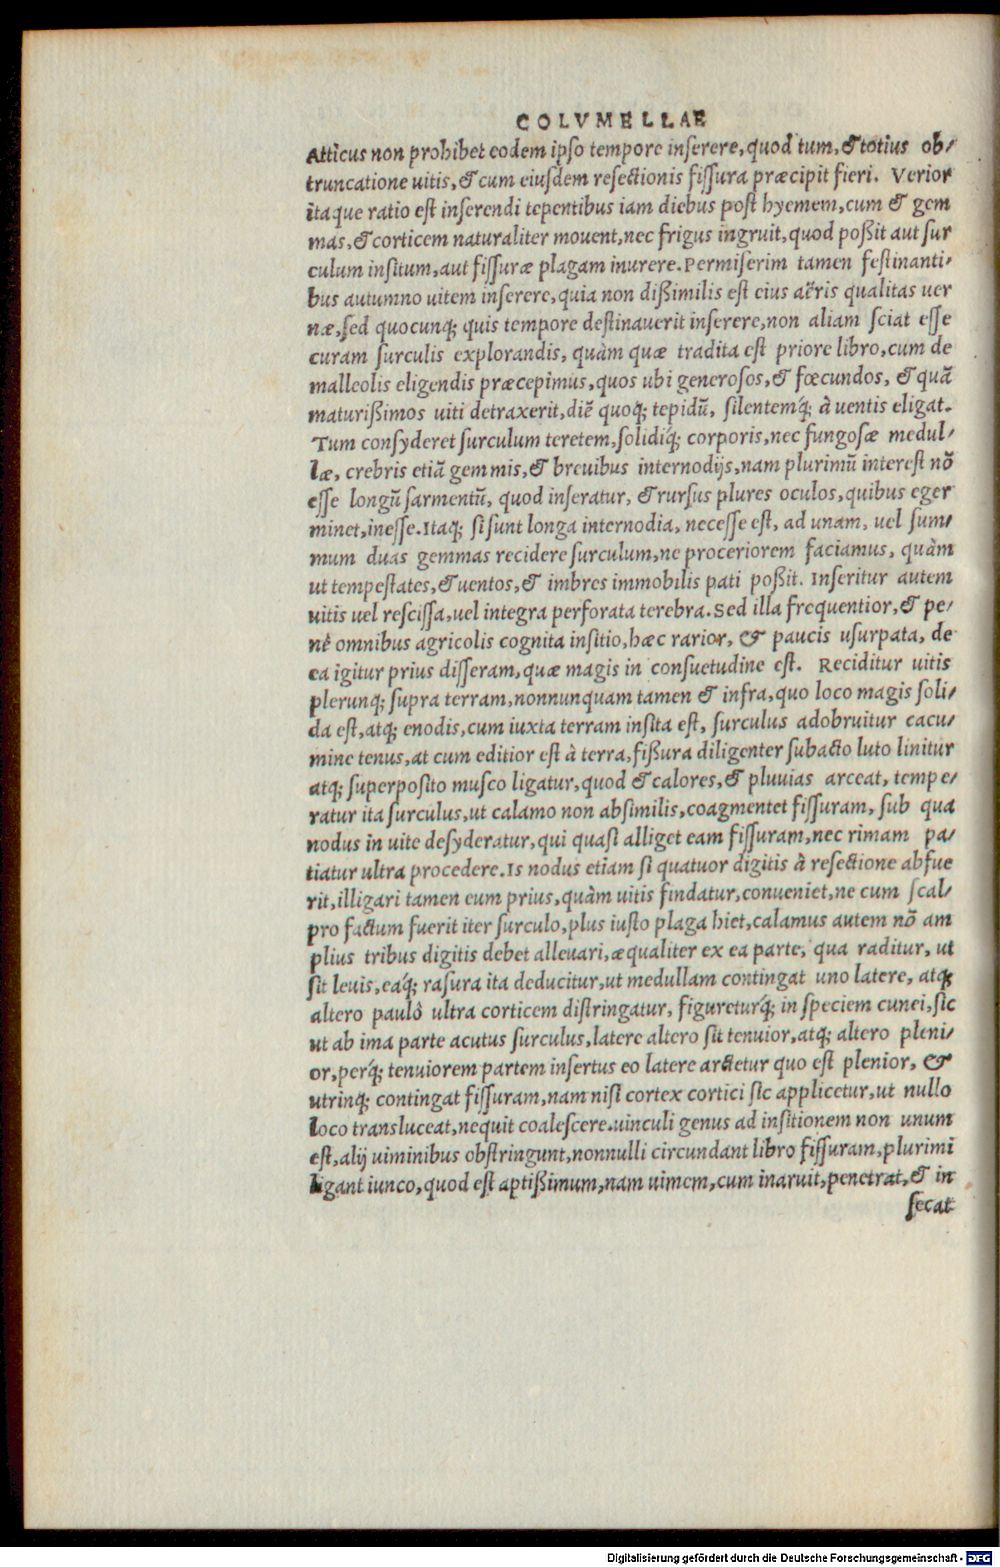 COLVMELLAE
Atticus non prohibet eodem ipso tempore inserere, quod tum, & totius ob-
truncatione uitis, & cum eiusdem resectionis fissura præcipit fieri. Verior
itaque ratio est inserendi tepentibus iam diebus post hyemem, cum & gem
mas, & corticem naturaliter mouent, nec frigus ingruit, quod poßit aut sur
culum insitum, aut fissuræ plagam inurere. Permiserim tamen festinanti-
bus autumno uitem inserere, quia non dißimilis est eius aëris qualitas uer
næ, sed quocunq; quis tempore destinauerit inserere, non aliam sciat esse
curam surculis explorandis, quàm quæ tradita est priore libro, cum de
malleolis eligendis præcepimus, quos ubi generosos, & fœcundos, & quã
maturißimos uiti detraxerit, diẽ quoq; tepidũ, silentemq́; à uentis eligat.
Tum consyderet surculum teretem, solidiq́; corporis, nec fungosæ medul-
læ, crebris etiã gemmis, & breuibus internodijs, nam plurimũ interest nõ
esse longũ sarmentũ, quod inseratur, & rursus plures oculos, quibus eger
minet, inesse. Itaq; si sunt longa internodia, necesse est, ad unam, uel sum-
mum duas gemmas recidere surculum, ne proceriorem faciamus, quàm
ut tempestates, & uentos, & imbres immobilis pati poßit. Inseritur autem
uitis uel rescissa, uel integra perforata terebra. Sed illa frequentior, & pe-
nè omnibus agricolis cognita insitio, hæc rarior, & paucis usurpata, de
ea igitur prius disseram, quæ magis in consuetudine est. Reciditur uitis
plerunq; supra terram, nonnunquam tamen & infra, quo loco magis soli-
da est, atq; enodis, cum iuxta terram insita est, surculus adobruitur cacu-
mine tenus, at cum editior est à terra, fißura diligenter subacto luto linitur
atq; superposito musco ligatur, quod & calores, & pluuias arceat, tempe-
ratur ita surculus, ut calamo non absimilis, coagmentet fissuram, sub qua
nodus in uite desyderatur, qui quasi alliget eam fissuram, nec rimam pa-
tiatur ultra procedere. Is nodus etiam si quatuor digitis à resectione abfue
rit, illigari tamen eum prius, quàm uitis findatur, conueniet, ne cum scal-
pro factum fuerit iter surculo, plus iusto plaga hiet, calamus autem nõ am
plius tribus digitis debet alleuari, æqualiter ex ea parte, qua raditur, ut
sit leuis, eaq́; rasura ita deducitur, ut medullam contingat uno latere, atq;
altero paulò ultra corticem distringatur, figureturq́; in speciem cunei, sic
ut ab ima parte acutus surculus, latere altero sit tenuior, atq; altero pleni-
or, perq́; tenuiorem partem insertus eo latere arctetur quo est plenior, &
utrinq; contingat fissuram, nam nisi cortex cortici sic applicetur, ut nullo
loco transluceat, nequit coalescere. uinculi genus ad insitionem non unum
est, alij uiminibus obstringunt, nonnulli circundant libro fissuram, plurimi
ligant iunco, quod est aptißimum, nam uimem, cum inaruit, penetrat, & in
secat
Digitalisierung gefördert durch die Deutsche Forschungsgemeinschaft - DFG